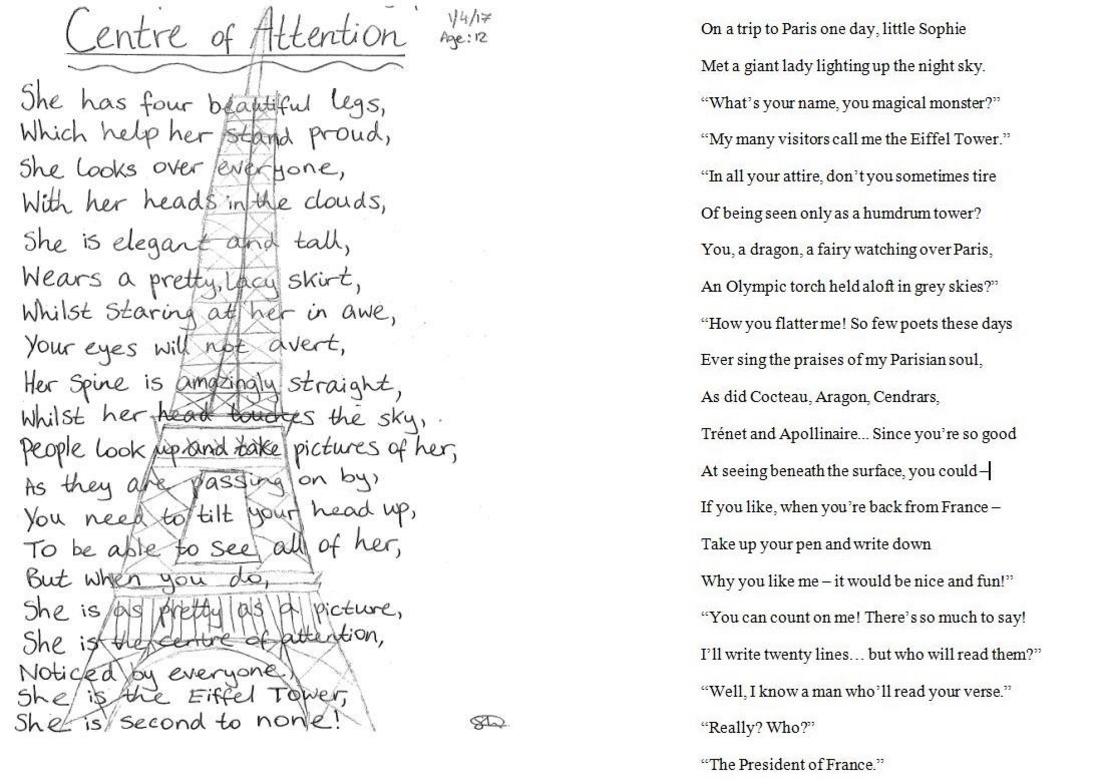 Centre of Attention
1/4/17
Age: 12
She has four beautiful legs,
Which help her stand proud,
She looks over everyone,
With her heads in the clouds,
She is elegant and tall,
Wears a pretty, lacy skirt,
Whilst staring at her in awe,
Your eyes will not avert,
Her spine is amazingly straight,
Whilst her head touches the sky,
People look up and take pictures of her,
As they are passing on by,
You need to tilt your head up,
To be able to see all of her,
But when you do,
She is as pretty as a picture,
She is the centre of attention,
Noticed by everyone,
She is the Eiffel Tower,
She is second to none!
On a trip to Paris one day, little Sophie
Met a giant lady lighting up the night sky.
“What’s your name, you magical monster?”
“My many visitors call me the Eiffel Tower.”
“In all your attire, don’t you sometimes tire
Of being seen only as a humdrum tower?
You, a dragon, a fairy watching over Paris,
An Olympic torch held aloft in grey skies?”
“How you flatter me! So few poets these days
Ever sing the praises of my Parisian soul,
As did Cocteau, Aragon, Cendrars,
Trénet and Apollinaire... Since you’re so good
At seeing beneath the surface, you could –
If you like, when you’re back from France –
Take up your pen and write down
Why you like me – it would be nice and fun!”
“You can count on me! There’s so much to say!
I’ll write twenty lines… but who will read them?”
“Well, I know a man who’ll read your verse.”
“Really? Who?”
“The President of France.”